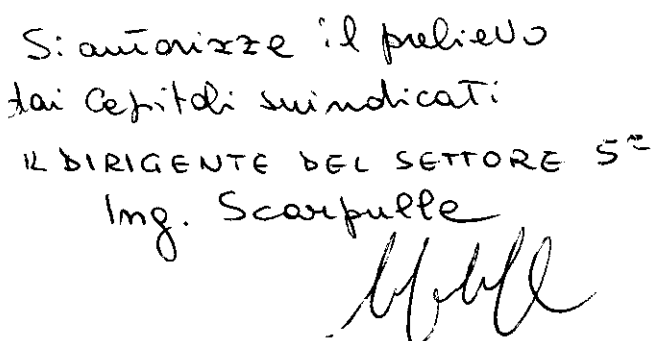 Si autorizza il prelievo
dai Capitoli suindicati
IL DIRIGENTE DEL SETTORE 5°
Ing. Scarpulla